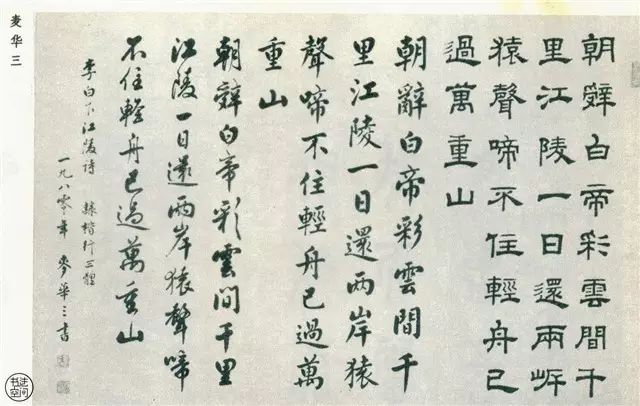 朝辭白帝彩雲間千
里江陵一日還兩岸
猿聲啼不住輕舟已
過萬重山
朝辭白帝彩雲間千
里江陵一日還兩岸猿
聲啼不住輕舟已過萬
重山
朝辭白帝彩雲間千里
江陵一日還兩岸猿聲啼
不住輕舟已過萬重山
李白下江陵詩 隸楷行三體
一九八零年 麥華三書
麦华三
书法空间